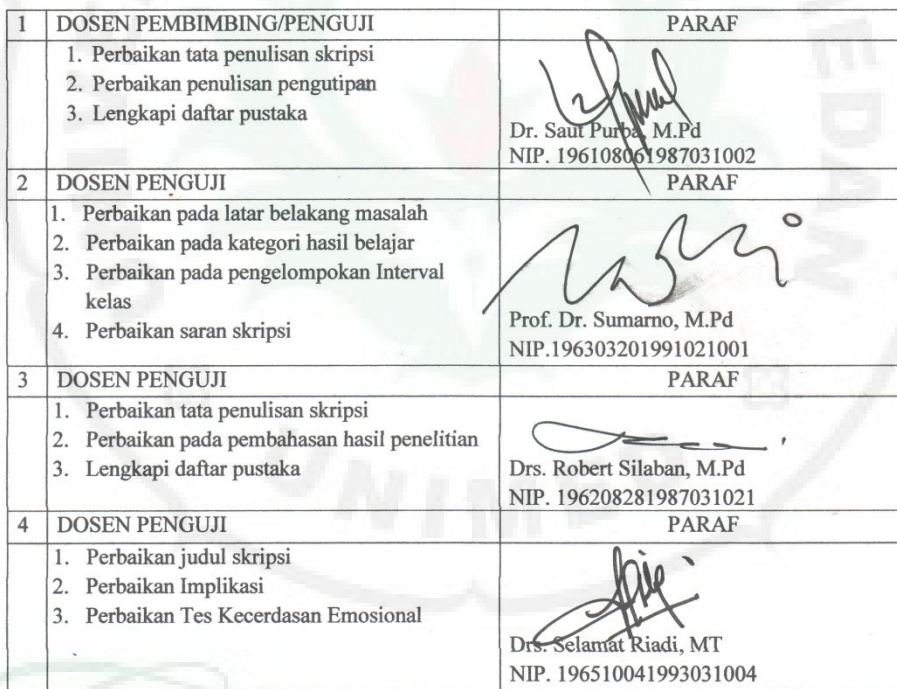 1 DOSEN PEMBIMBING/PENGUJI PARAF
1. Perbaikan tata penulisan skripsi
2. Perbaikan penulisan pengutipan
3. Lengkapi daftar pustaka
Dr. Saut Purba, M.Pd
NIP. 196108061987031002
2 DOSEN PENGUJI PARAF
1. Perbaikan pada latar belakang masalah
2. Perbaikan pada kategori hasil belajar
3. Perbaikan pada pengelompokan Interval
kelas
4. Perbaikan saran skripsi
Prof. Dr. Sumarno, M.Pd
NIP.196303201991021001
3 DOSEN PENGUJI PARAF
1. Perbaikan tata penulisan skripsi
2. Perbaikan pada pembahasan hasil penelitian
3. Lengkapi daftar pustaka
Drs. Robert Silaban, M.Pd
NIP. 196208281987031021
4 DOSEN PENGUJI PARAF
1. Perbaikan judul skripsi
2. Perbaikan Implikasi
3. Perbaikan Tes Kecerdasan Emosional
Drs. Selamat Riadi, MT
NIP. 196510041993031004
UNIMED
EDAN